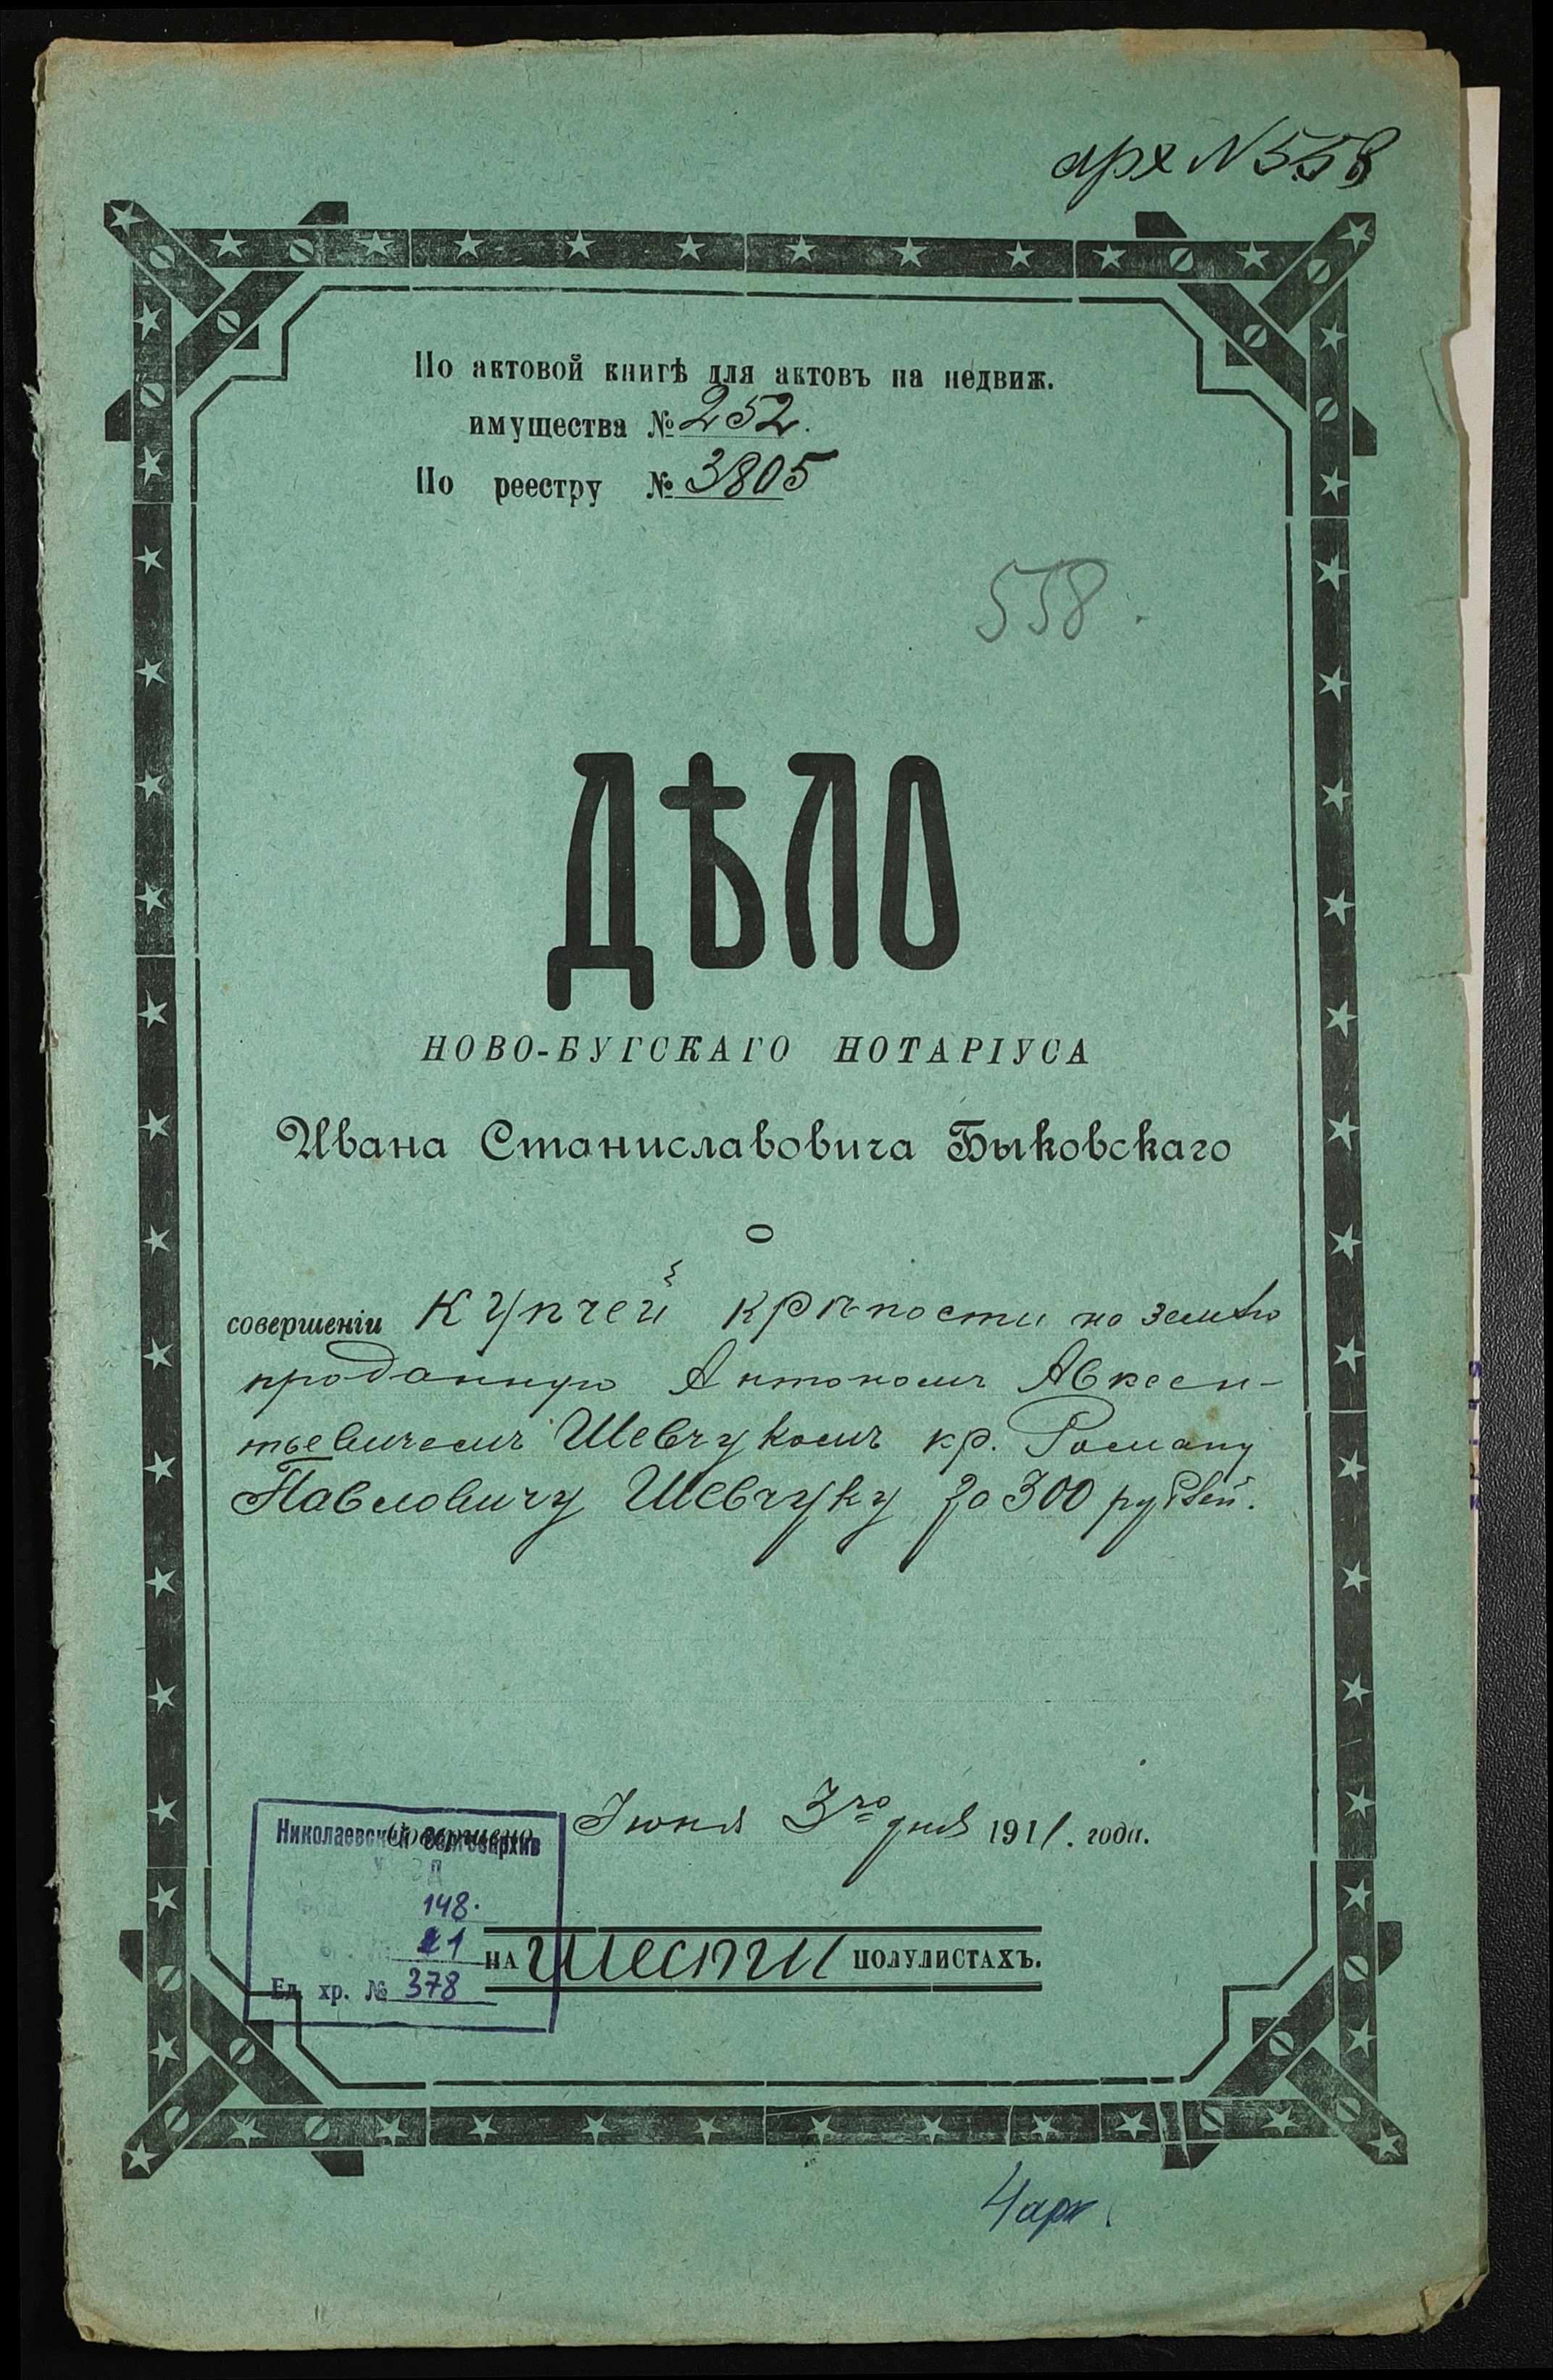 арх N 558
По актовой книгѣ для актовъ на недвиж.
имущества № 252.
По реестру № 3805
558.
ДѢЛО
НОВО-БУГСКАГО НОТАРІУСА
Ивана Станиславовича Быковскаго
О
совершеніи купчей крѣпости на землю
проданную Антономъ Авксен-
тьевичемъ Шевчукомъ кр. Роману
Павловичу Шевчуку за 300 рублей.
Совершено Іюня 3го дня 1911. года.
Николаевский Облгосархив
148.
21
Ед. хр. № 378
НА шести ПОЛУЛИСТАХЪ.
4 арк.